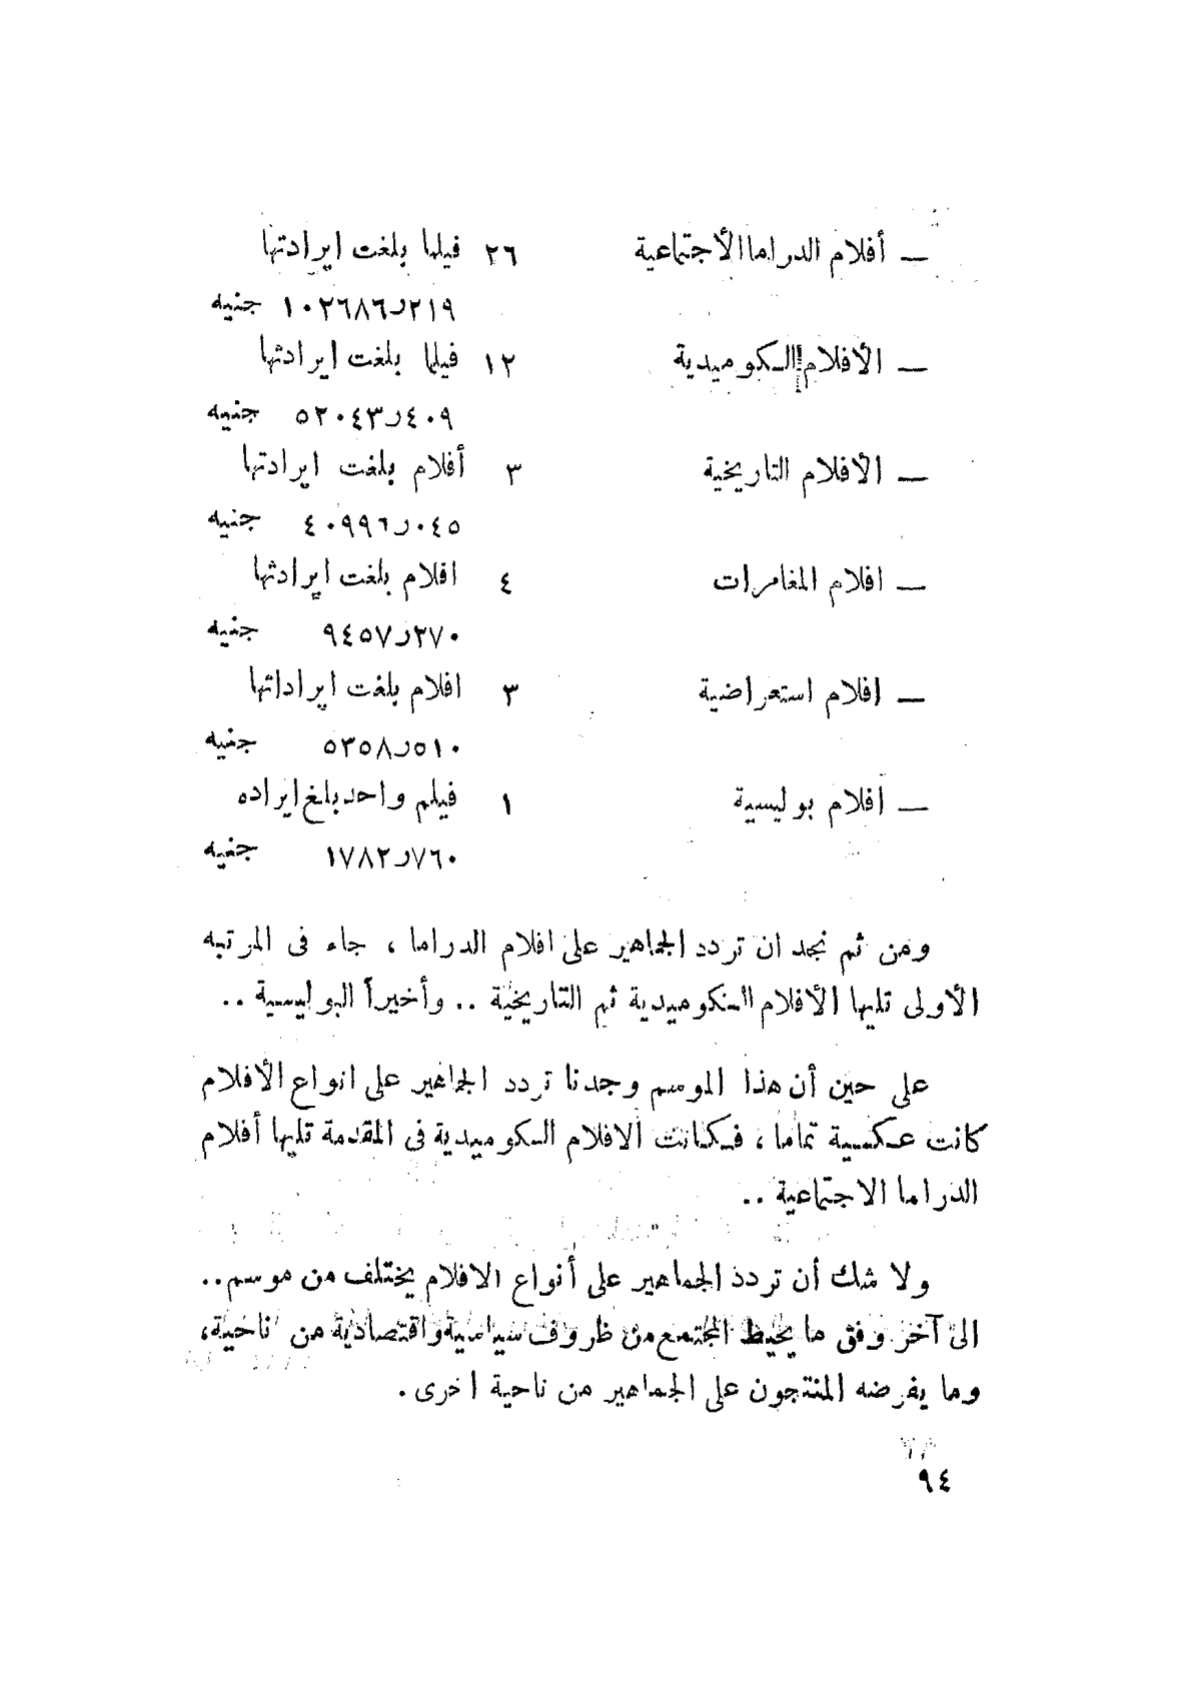 — أفلام الدراما الأجتماعية ٢٦ فيلما بلغت ايرادتها
٢١٩ر١٠٢٦٨٦ جنيه
— الأفلام الكوميدية ١٢ فيلما بلغت ايرادتها
٤٠٩ر٥٢٠٤٣ جنيه
— الأفلام التاريخية ٣ أفلام بلغت ايرادتها
٠٤٥ر٤٠٩٩٦ جنيه
— افلام المغامرات ٤ افلام بلغت ايرادتها
٢٧٠ر٩٤٥٧ جنيه
— افلام استعراضية ٣ افلام بلغت ايراداتها
٥١٠ر٥٣٥٨ جنيه
— افلام بوليسية ١ فيلم واحد بلغ ايراده
٧٦٠ر١٧٨٢ جنيه
ومن ثم نجد ان تردد الجماهير على افلام الدراما ، جاء فى المرتبه
الأولى تليها الأفلام الكوميدية ثم التاريخية .. وأخيراً البوليسية ..
على حين أن هذا الموسم وجدنا تردد الجماهير على انواع الأفلام
كانت عكسية تماما ، فكانت الافلام الكوميدية فى المقدمة تليها أفلام
الدراما الاجتماعية ..
ولا شك أن تردد الجماهير على أنواع الافلام يختلف من موسم ..
الى آخر وفق ما يحيط المجتمع من ظروف سياسية واقتصادية من ناحية ،
وما يفرضه المنتجون على الجماهير من ناحية اخرى .
٩٤